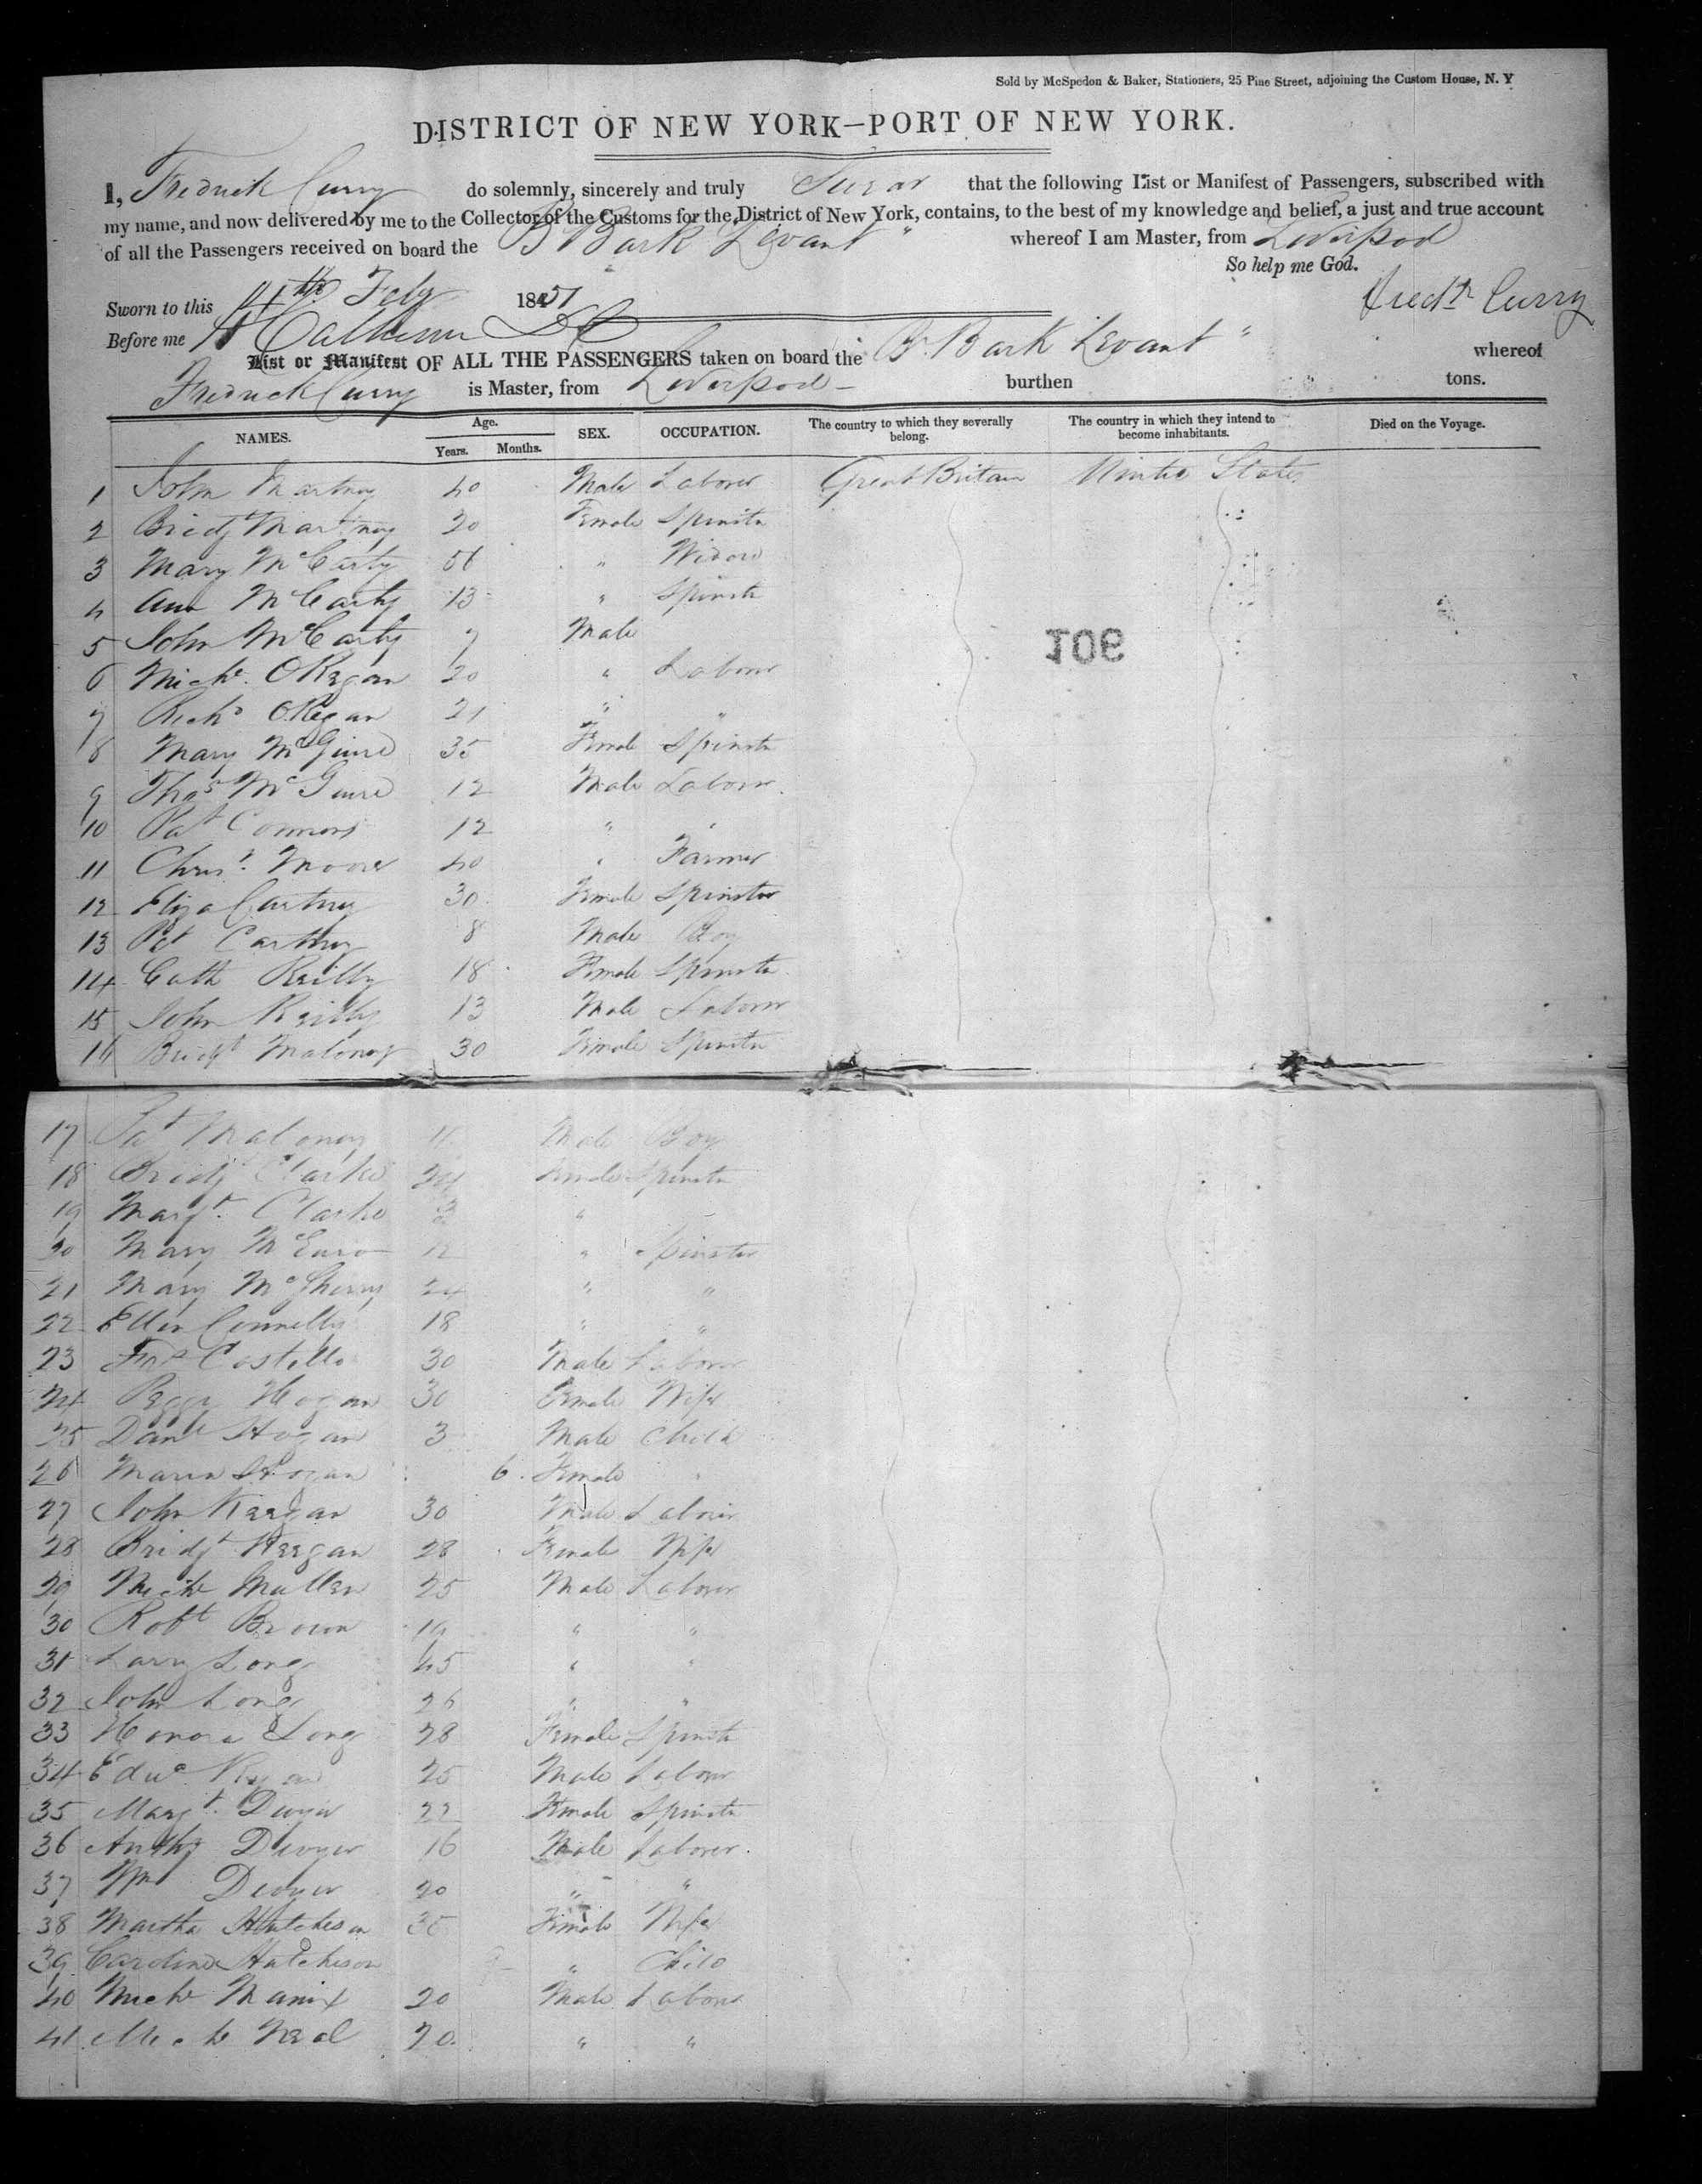 Sold by McSpedon & Baker, Stationers, 25 Pine Street, adjoining the Custom House, N. Y
DISTRICT OF NEW YORK—PORT OF NEW YORK.
I, Fredrick Curry do solemnly, sincerely and truly Swear that the following List or Manifest of Passengers, subscribed with
my name, and now delivered by me to the Collector of the Customs for the District of New York, contains, to the best of my knowledge and belief, a just and true account
of all the Passengers received on board the B Bark Levant " whereof I am Master, from Liverpool
So help me God.
Sworn to this 14th Feby 1851
Fredk Curry
Before me
List or Manifest OF ALL THE PASSENGERS taken on board the Br. Bark Levant " whereof
Fredrick Curry is Master, from Liverpool burthen tons.
NAMES. Age. Years. Months. SEX. OCCUPATION. The country to which they severally belong. The country in which they intend to become inhabitants. Died on the Voyage.
1 John Martney 40 Male Laborer Great Britain United States
2 Bridgt Martney 20 Female Spinster
3 Mary McCarty 56 " Widow
4 Ann McCarty 13 " Spinster
5 John McCarty 7 Male
6 Michl. ORegan 20 " Laborer
7 Richd ORegan 21 " "
8 Mary McGuire 35 Female Spinster
9 Thos McGuire 12 Male Laborer
10 Pat Connors 12 " "
11 Chrisr. Moore 40 " Farmer
12 Eliza Cartney 30 Female Spinster
13 Pat Cartney 8 Male Boy
14 Cath Reilly 18 Female Spinster
15 John Reilly 13 Male Laborer
16 Bridgt Maloney 30 Female Spinster
17 Pat Maloney 11 Male Boy
18 Bridgt Clarke 24 Female Spinster
19 Margt. Clarke "
20 Mary 12 " Spinster
21 Mary McSherry 24 " "
22 Ellen Connelly 18 " "
23 Costello 30 Male Laborer
24 Peggy Hogan 30 Female Wife
25 Danl Hogan 3 Male Child
26 Maria Hogan 6 Female "
27 John Keegan 30 Male Laborer
28 Bridgt Keegan 28 Female Wife
29 Michl Mullen 25 Male Laborer
30 Robt Brown 19 " "
31 Larry Long 45 " "
32 John Long 26 " "
33 Honora Long 28 Female Spinster
34 Edwd Ryan 25 Male Laborer
35 Margt. Dwyer 22 Female Spinster
36 Anthy Dwyer 16 Male Laborer
37 Wm Dwyer 20 " "
38 Martha Hutcheson 35 Female Wife
39 Caroline Hutcheson " Child
40 Michl Manix 20 Male Laborer
41 Michl Neal 20 " "